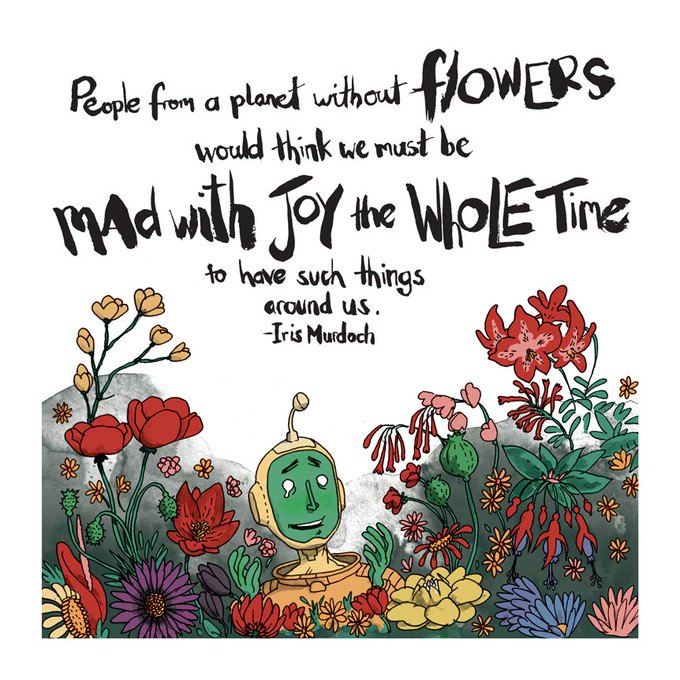 People from a planet without flOWERS
would think we must be
mAd with JOY the WHOLE Time
to have such things
around us.
-Iris Murdoch